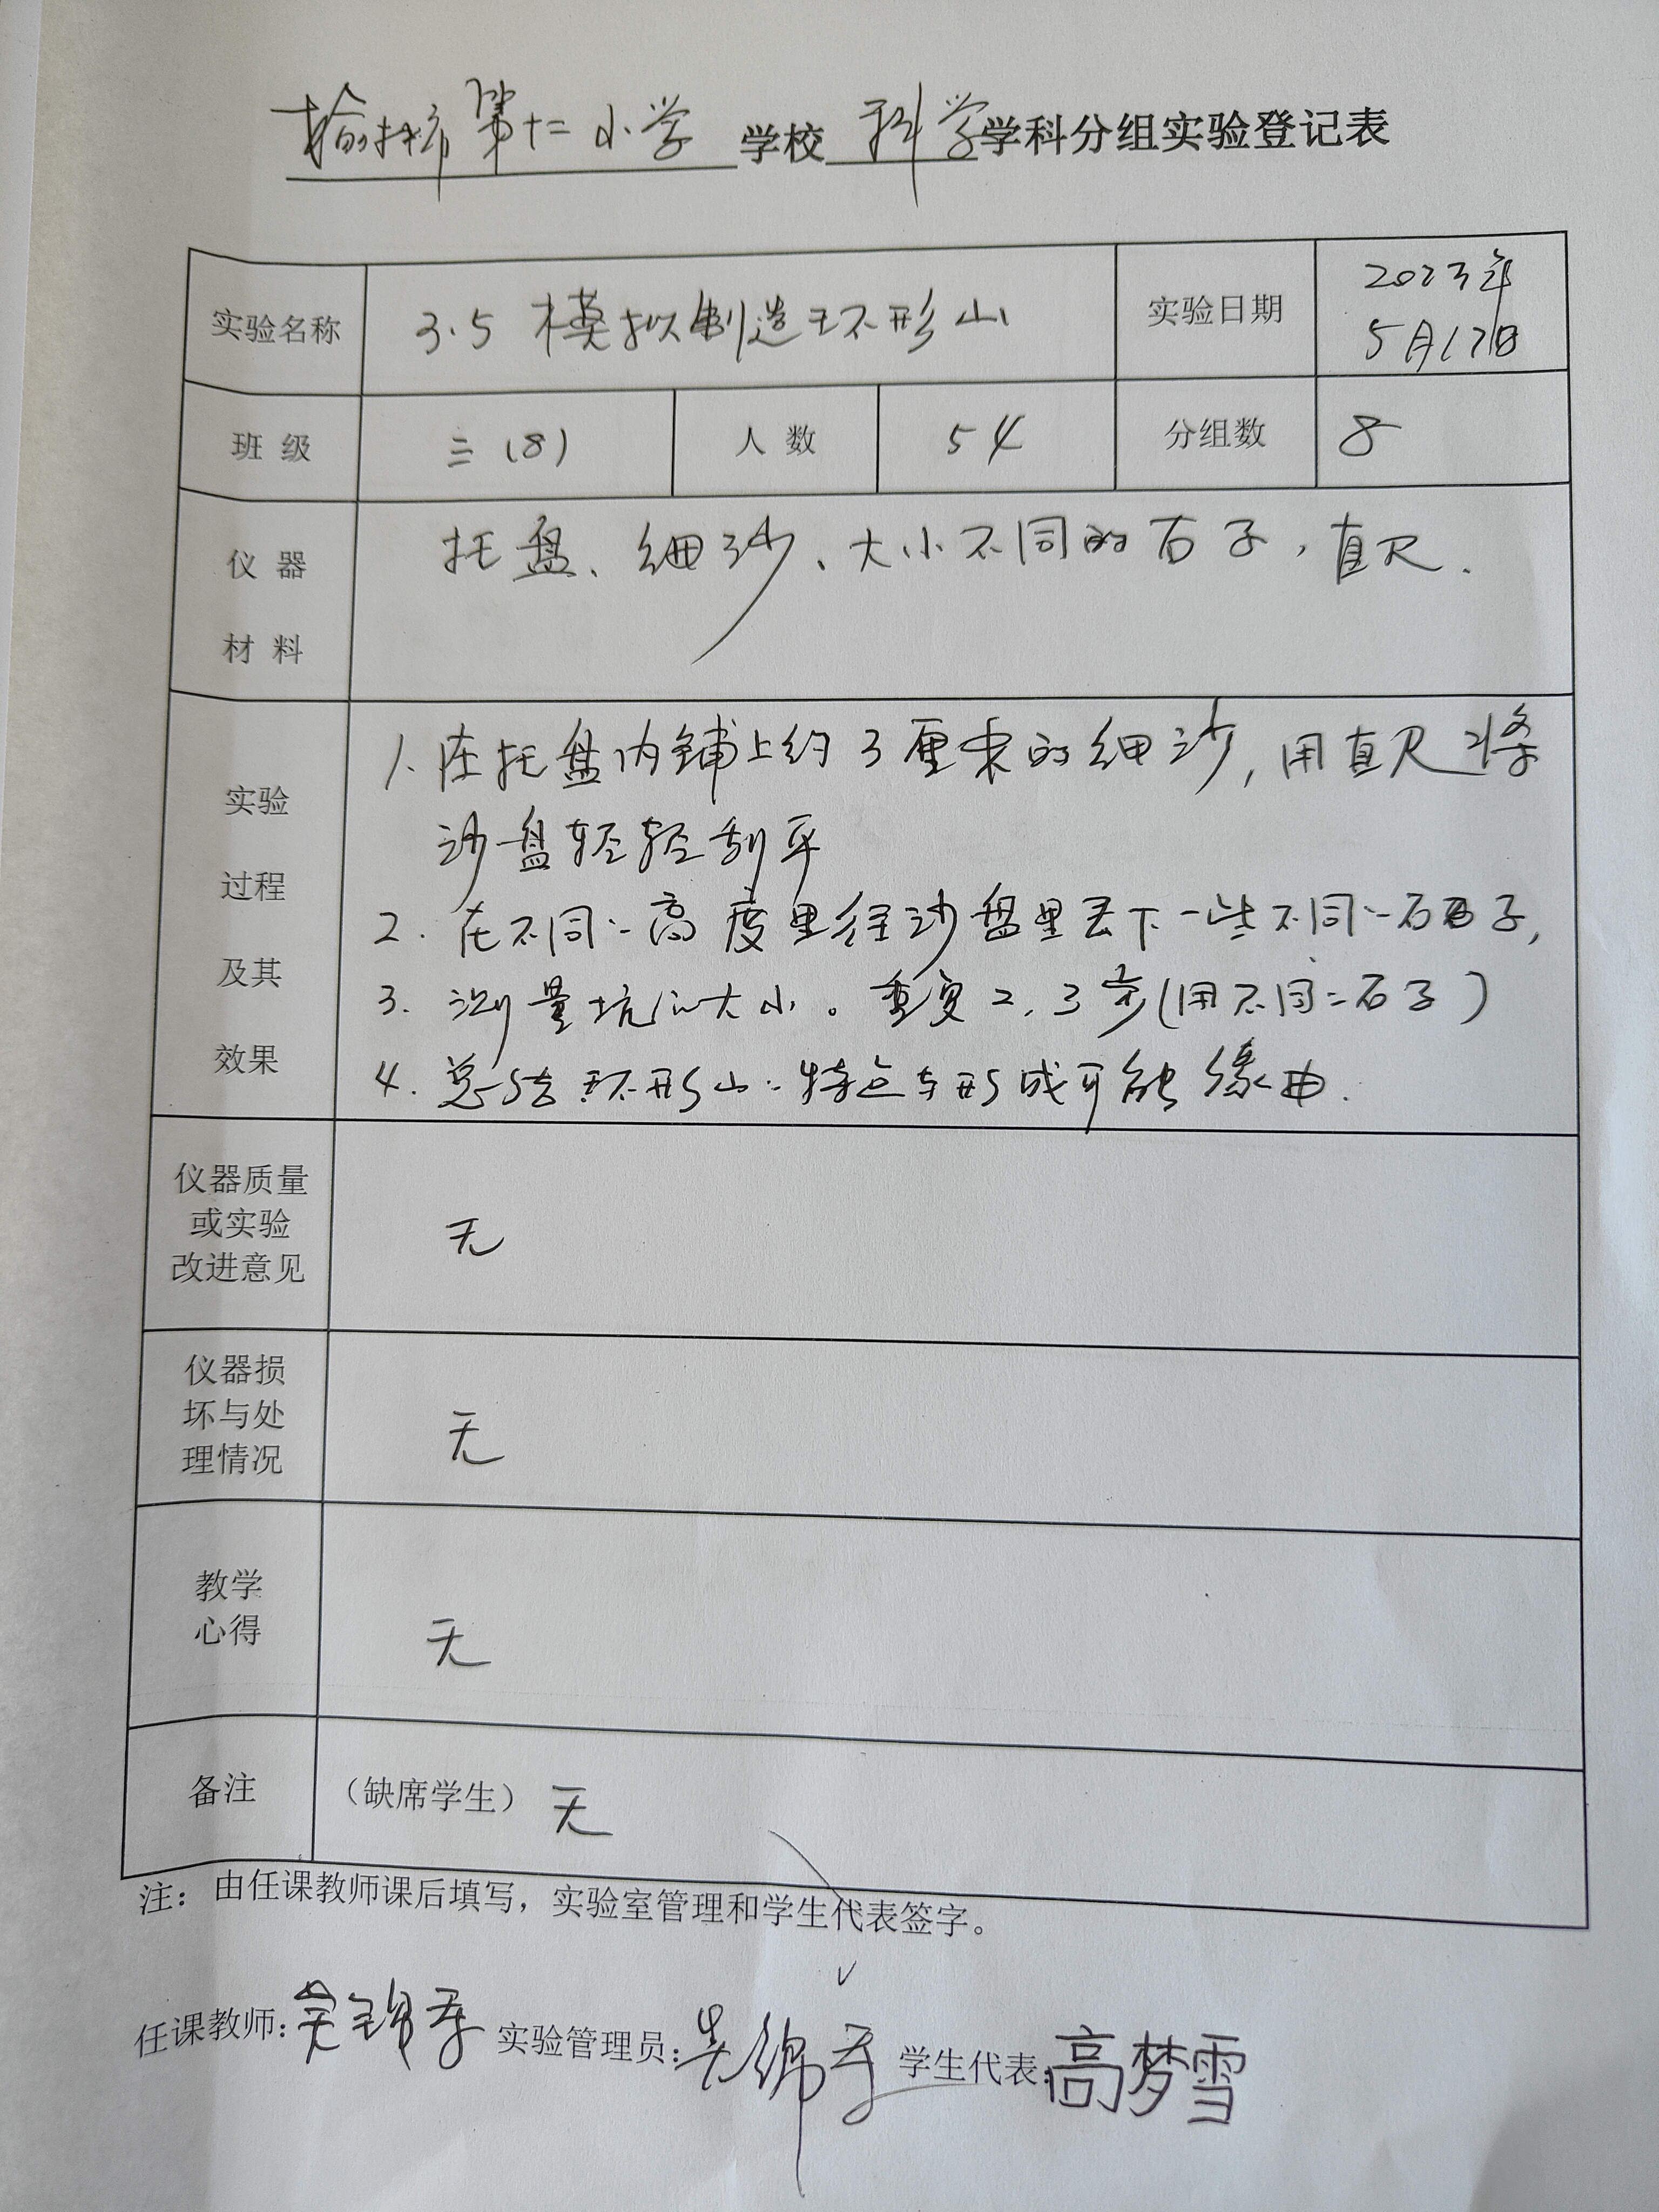 榆林市第十二小学学校科学学科分组实验登记表
实验名称 3.5 模拟制造环形山 实验日期 2023年5月17日
班级 三(8) 人数 54 分组数 8
仪器材料 托盘、细沙、大小不同的石子，直尺.
实验过程及其效果
1.在托盘内铺上约3厘米的细沙,用直尺将
沙盘轻轻刮平
2.在不同的高度里往沙盘里丢下一些不同的石子,
3.测量坑的大小。重复2,3步(用不同的石子)
4.总结环形山的特点与形成可能缘由.
仪器质量或实验改进意见 无
仪器损坏与处理情况 无
教学心得 无
备注 （缺席学生）无
注：由任课教师课后填写，实验室管理和学生代表签字。
任课教师: 实验管理员: 学生代表:高梦雪